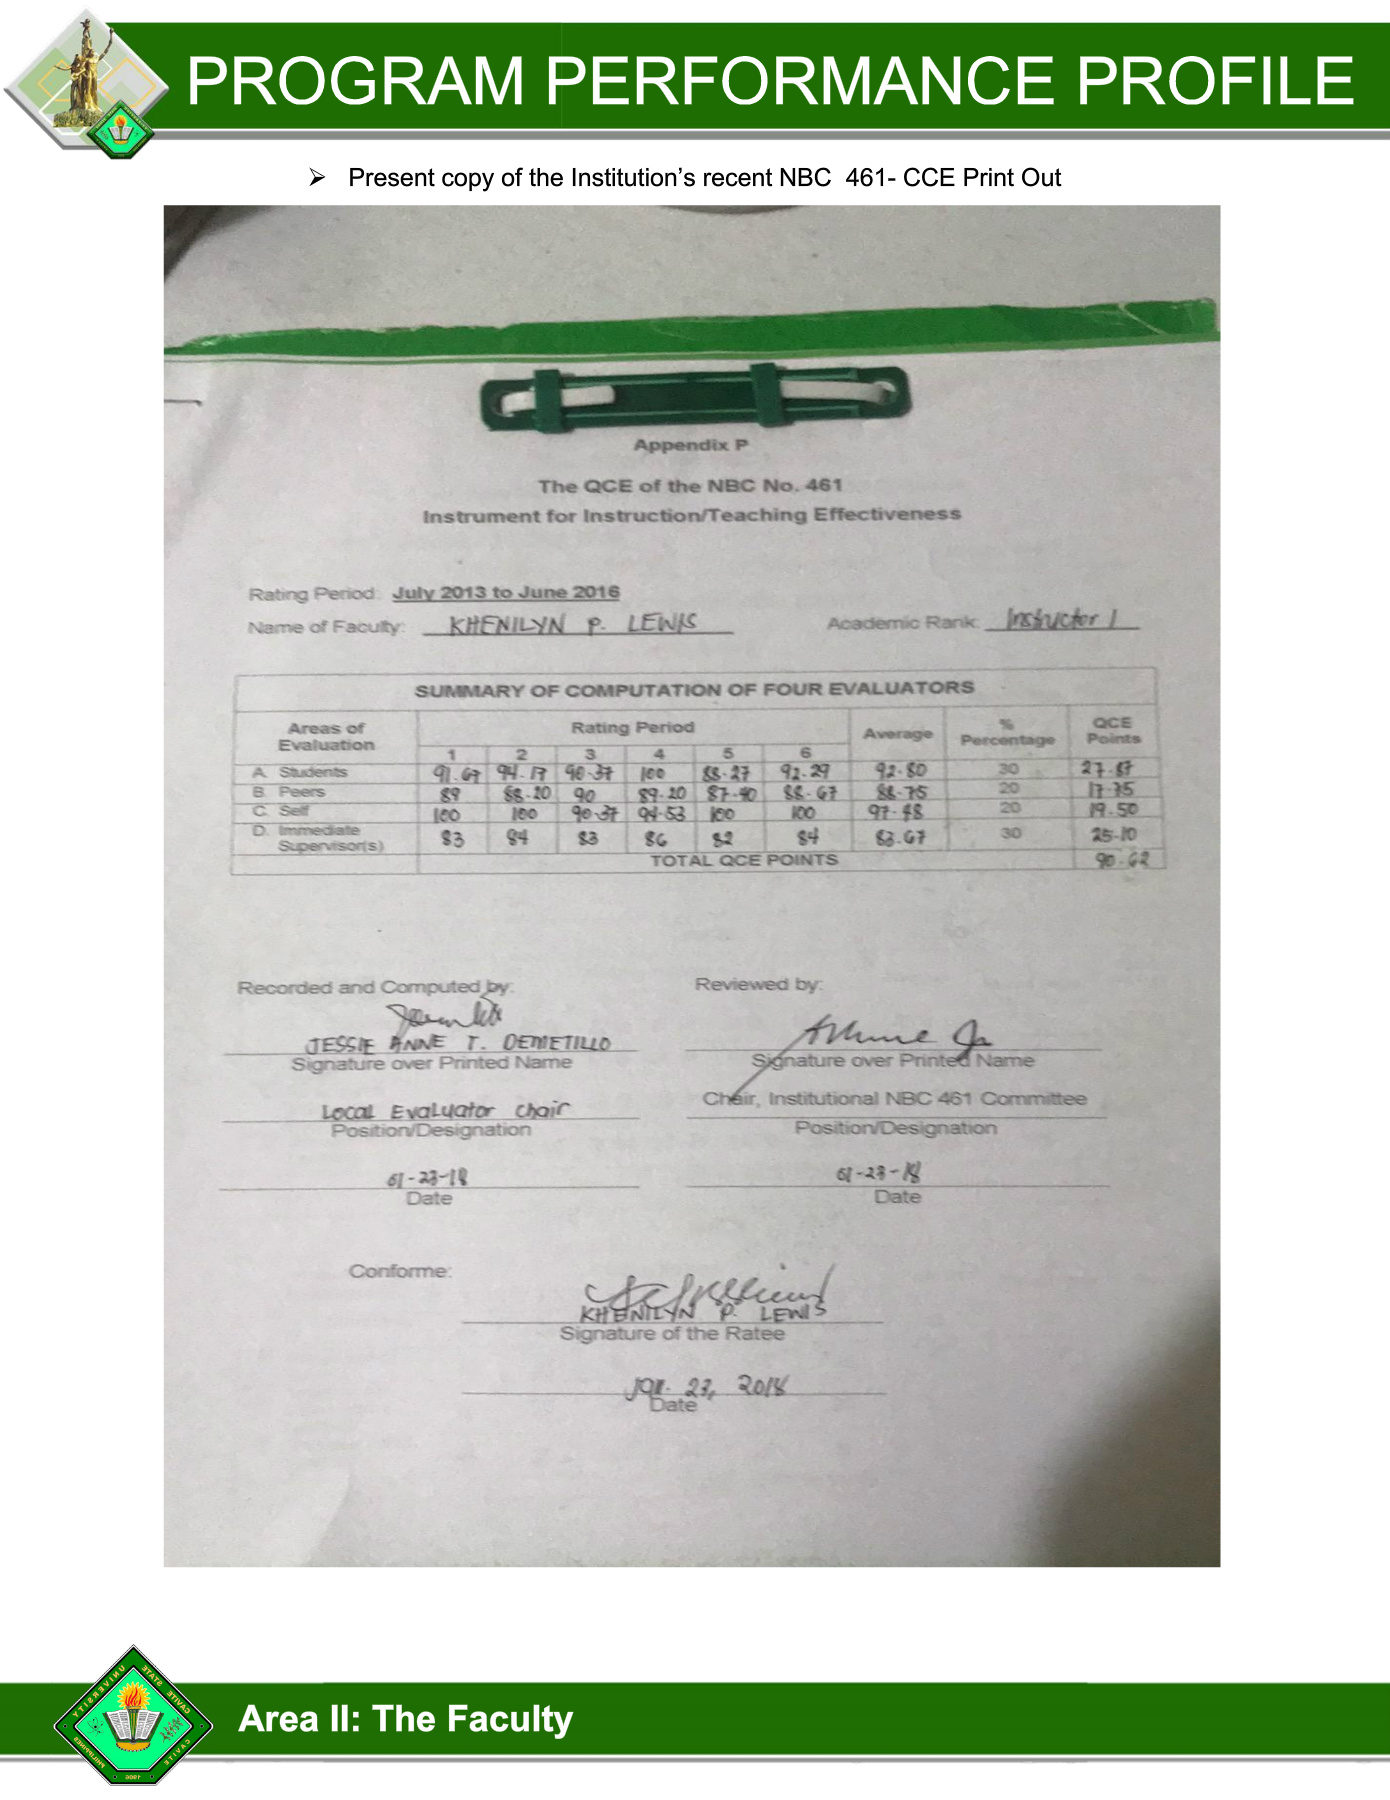 PROGRAM PERFORMANCE PROFILE
➢ Present copy of the Institution's recent NBC 461- CCE Print Out
Appendix P
The QCE of the NBC No. 461
Instrument for Instruction/Teaching Effectiveness
Rating Period: July 2013 to June 2016
Name of Faculty: KHENILYN P. LEWIS Academic Rank: Instructor I
SUMMARY OF COMPUTATION OF FOUR EVALUATORS
Areas of Evaluation Rating Period Average % Percentage QCE Points
1 2 3 4 5 6
A. Students 91.67 94.17 90.37 100 88.27 92.29 92.80 30 27.87
B. Peers 89 88.20 90 89.20 87.40 88.67 88.75 20 17.75
C. Self 100 100 90.37 94.53 100 100 97.48 20 19.50
D. Immediate Supervisor(s) 83 84 83 86 82 84 83.67 30 25.10
TOTAL QCE POINTS 90.62
Recorded and Computed by: Reviewed by:
JESSIE ANNE T. DEMETILLO
Signature over Printed Name Signature over Printed Name
Local Evaluator Chair Chair, Institutional NBC 461 Committee
Position/Designation Position/Designation
01-23-18 01-23-18
Date Date
Conforme:
KHENILYN P. LEWIS
Signature of the Ratee
Jan. 23, 2018
Date
CAVITE STATE UNIVERSITY
CAVITE
PHILIPPINES
1906
Area II: The Faculty